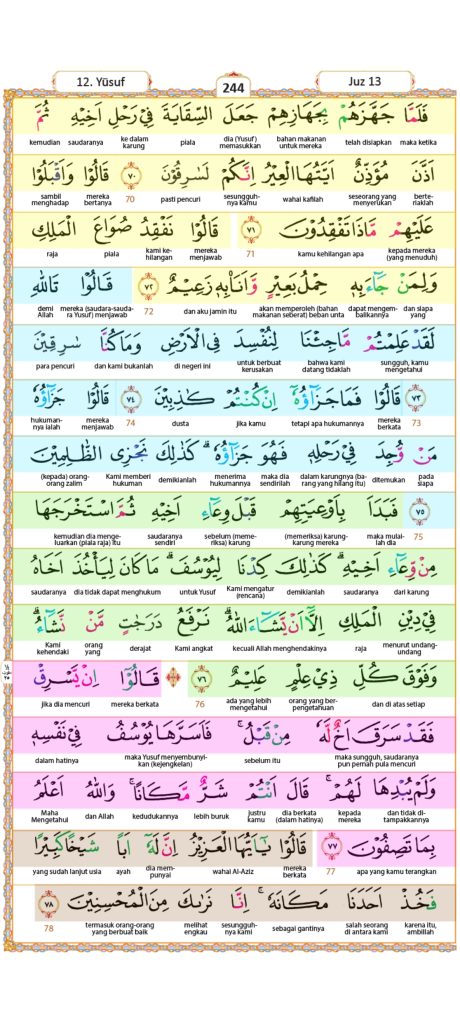 12. Yūsuf
244
Juz 13
فَلَمَّا جَهَّزَهُمْ بِجَهَازِهِمْ جَعَلَ السِّقَايَةَ فِيْ رَحْلِ اَخِيْهِ ثُمَّ
maka ketika telah disiapkan bahan makanan untuk mereka dia (Yusuf) memasukkan piala ke dalam karung saudaranya kemudian
اَذَّنَ مُؤَذِّنٌ اَيَّتُهَا الْعِيْرُ اِنَّكُمْ لَسٰرِقُوْنَ ٧٠ قَالُوْا وَاَقْبَلُوْا
berteriaklah seseorang yang menyerukan wahai kafilah sesungguhnya kamu pasti pencuri 70 mereka bertanya sambil menghadap
عَلَيْهِمْ مَّاذَا تَفْقِدُوْنَ ٧١ قَالُوْا نَفْقِدُ صُوَاعَ الْمَلِكِ
kepada mereka (yang menuduh) kamu kehilangan apa 71 mereka menjawab kami kehilangan piala raja
وَلِمَنْ جَاۤءَ بِهٖ حِمْلُ بَعِيْرٍ وَّاَنَا۠ بِهٖ زَعِيْمٌ ٧٢ قَالُوْا تَاللّٰهِ
dan siapa yang dapat mengembalikannya akan memperoleh (bahan makanan seberat) beban unta dan aku jamin itu 72 mereka (saudara-saudara Yusuf) menjawab demi Allah
لَقَدْ عَلِمْتُمْ مَّا جِئْنَا لِنُفْسِدَ فِى الْاَرْضِ وَمَا كُنَّا سٰرِقِيْنَ
sungguh, kamu mengetahui bahwa kami datang tidaklah untuk berbuat kerusakan di negeri ini dan kami bukanlah para pencuri
٧٣ قَالُوْا فَمَا جَزَاۤؤُهٗٓ اِنْ كُنْتُمْ كٰذِبِيْنَ ٧٤ قَالُوْا جَزَاۤؤُهٗ
73 mereka berkata tetapi apa hukumannya jika kamu dusta 74 mereka menjawab hukumannya ialah
مَنْ وُّجِدَ فِيْ رَحْلِهٖ فَهُوَ جَزَاۤؤُهٗۗ كَذٰلِكَ نَجْزِى الظّٰلِمِيْنَ
pada siapa ditemukan dalam karungnya (barang yang hilang itu) maka dia sendirilah menerima hukumannya demikianlah Kami memberi hukuman (kepada) orang-orang zalim
٧٥ فَبَدَاَ بِاَوْعِيَتِهِمْ قَبْلَ وِعَاۤءِ اَخِيْهِ ثُمَّ اسْتَخْرَجَهَا
75 maka mulailah dia (memeriksa) karung-karung mereka sebelum (memeriksa) karung saudaranya sendiri kemudian dia mengeluarkan (piala raja) itu
مِنْ وِّعَاۤءِ اَخِيْهِۗ كَذٰلِكَ كِدْنَا لِيُوْسُفَۗ مَا كَانَ لِيَأْخُذَ اَخَاهُ
dari karung saudaranya demikianlah Kami mengatur (rencana) untuk Yusuf dia tidak dapat menghukum saudaranya
فِيْ دِيْنِ الْمَلِكِ اِلَّآ اَنْ يَّشَاۤءَ اللّٰهُۗ نَرْفَعُ دَرَجٰتٍ مَّنْ نَّشَاۤءُۗ
menurut undang-undang raja kecuali Allah menghendakinya Kami angkat derajat orang yang Kami kehendaki
وَفَوْقَ كُلِّ ذِيْ عِلْمٍ عَلِيْمٌ ٧٦ قَالُوْٓا اِنْ يَّسْرِقْ
dan di atas setiap orang yang berpengetahuan ada yang lebih mengetahui 76 mereka berkata jika dia mencuri
فَقَدْ سَرَقَ اَخٌ لَّهٗ مِنْ قَبْلُۚ فَاَسَرَّهَا يُوْسُفُ فِيْ نَفْسِهٖ
maka sungguh, saudaranya pun pernah pula mencuri sebelum itu maka Yusuf menyembunyikan (kejengkelan) dalam hatinya
وَلَمْ يُبْدِهَا لَهُمْۚ قَالَ اَنْتُمْ شَرٌّ مَّكَانًاۚ وَاللّٰهُ اَعْلَمُ
dan tidak ditampakkannya kepada mereka dia berkata (dalam hatinya) justru kamu lebih buruk kedudukannya dan Allah Maha Mengetahui
بِمَا تَصِفُوْنَ ٧٧ قَالُوْا يٰٓاَيُّهَا الْعَزِيْزُ اِنَّ لَهٗٓ اَبًا شَيْخًا كَبِيْرًا
apa yang kamu terangkan 77 mereka berkata wahai Al-Aziz dia mempunyai ayah yang sudah lanjut usia
فَخُذْ اَحَدَنَا مَكَانَهٗۚ اِنَّا نَرٰىكَ مِنَ الْمُحْسِنِيْنَ ٧٨
karena itu, ambillah salah seorang di antara kami sebagai gantinya sesungguhnya kami melihat engkau termasuk orang-orang yang berbuat baik 78